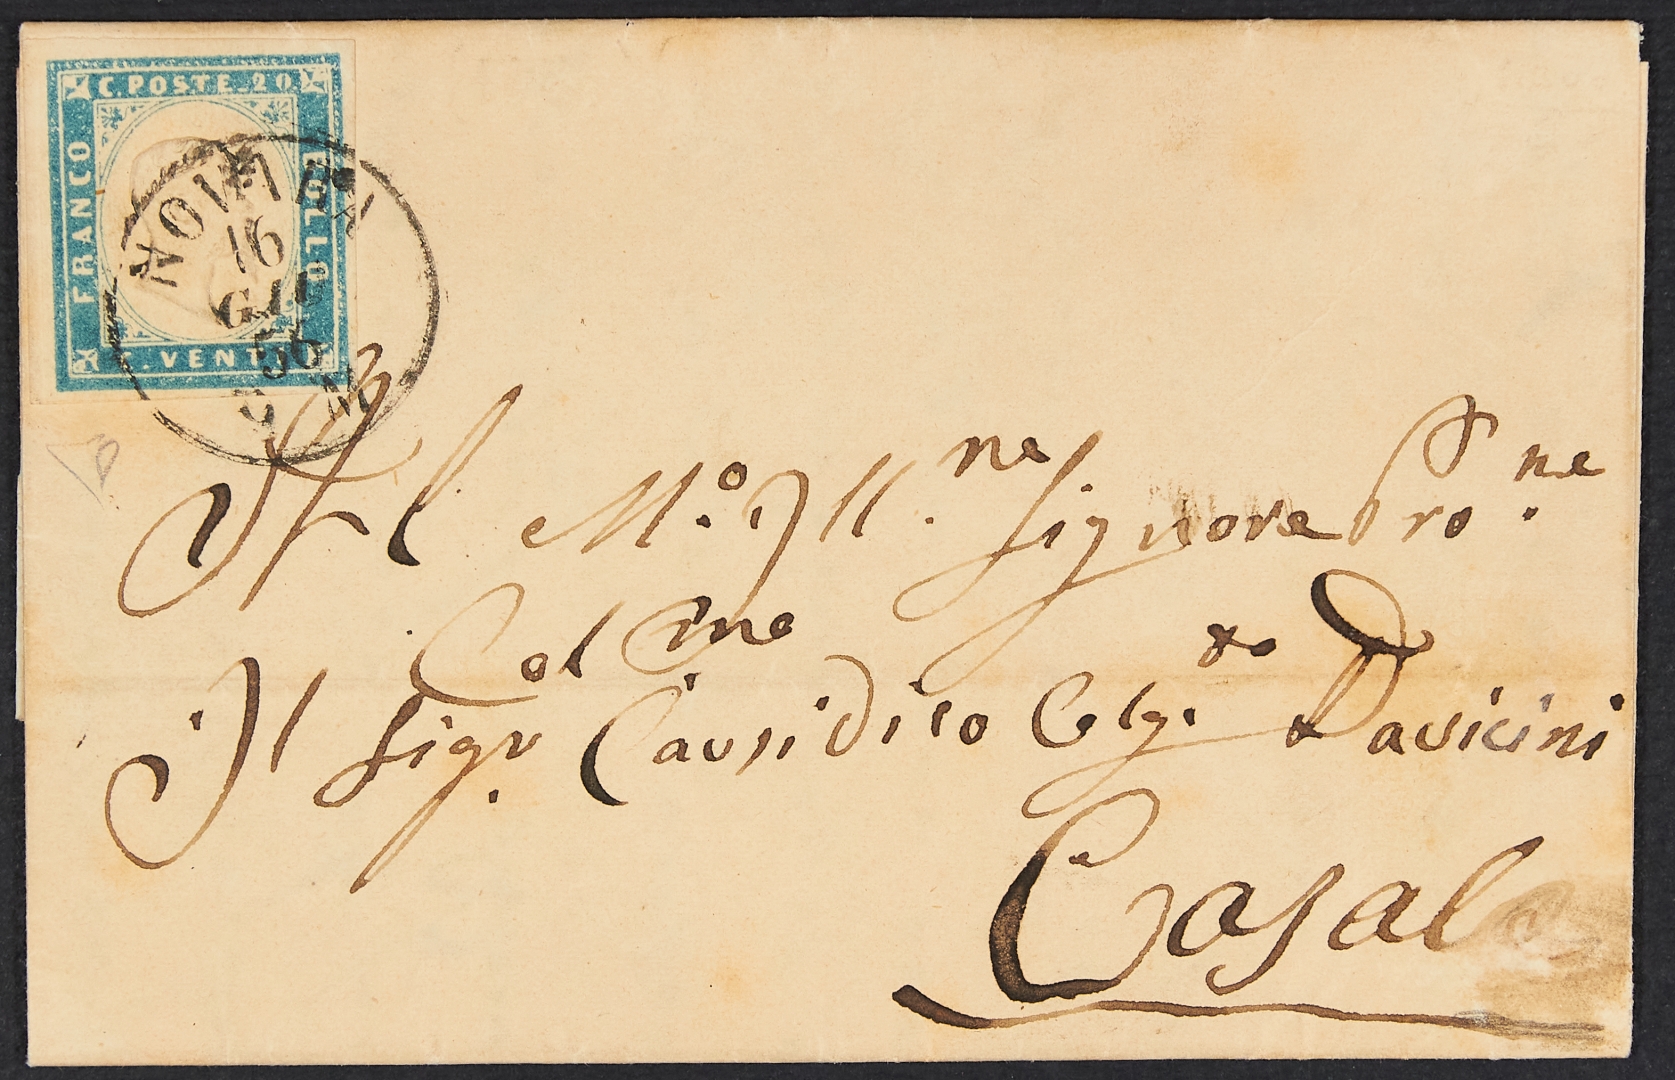 C. POSTE 20
FRANCO
BOLLO
C. VENTI
NOVARA
16
GIU
56
9 M
Al M.o Ill.ne Signore Pro.ne
Col.me
Il Sigr. Causidico Colg.to Davicini
Casal